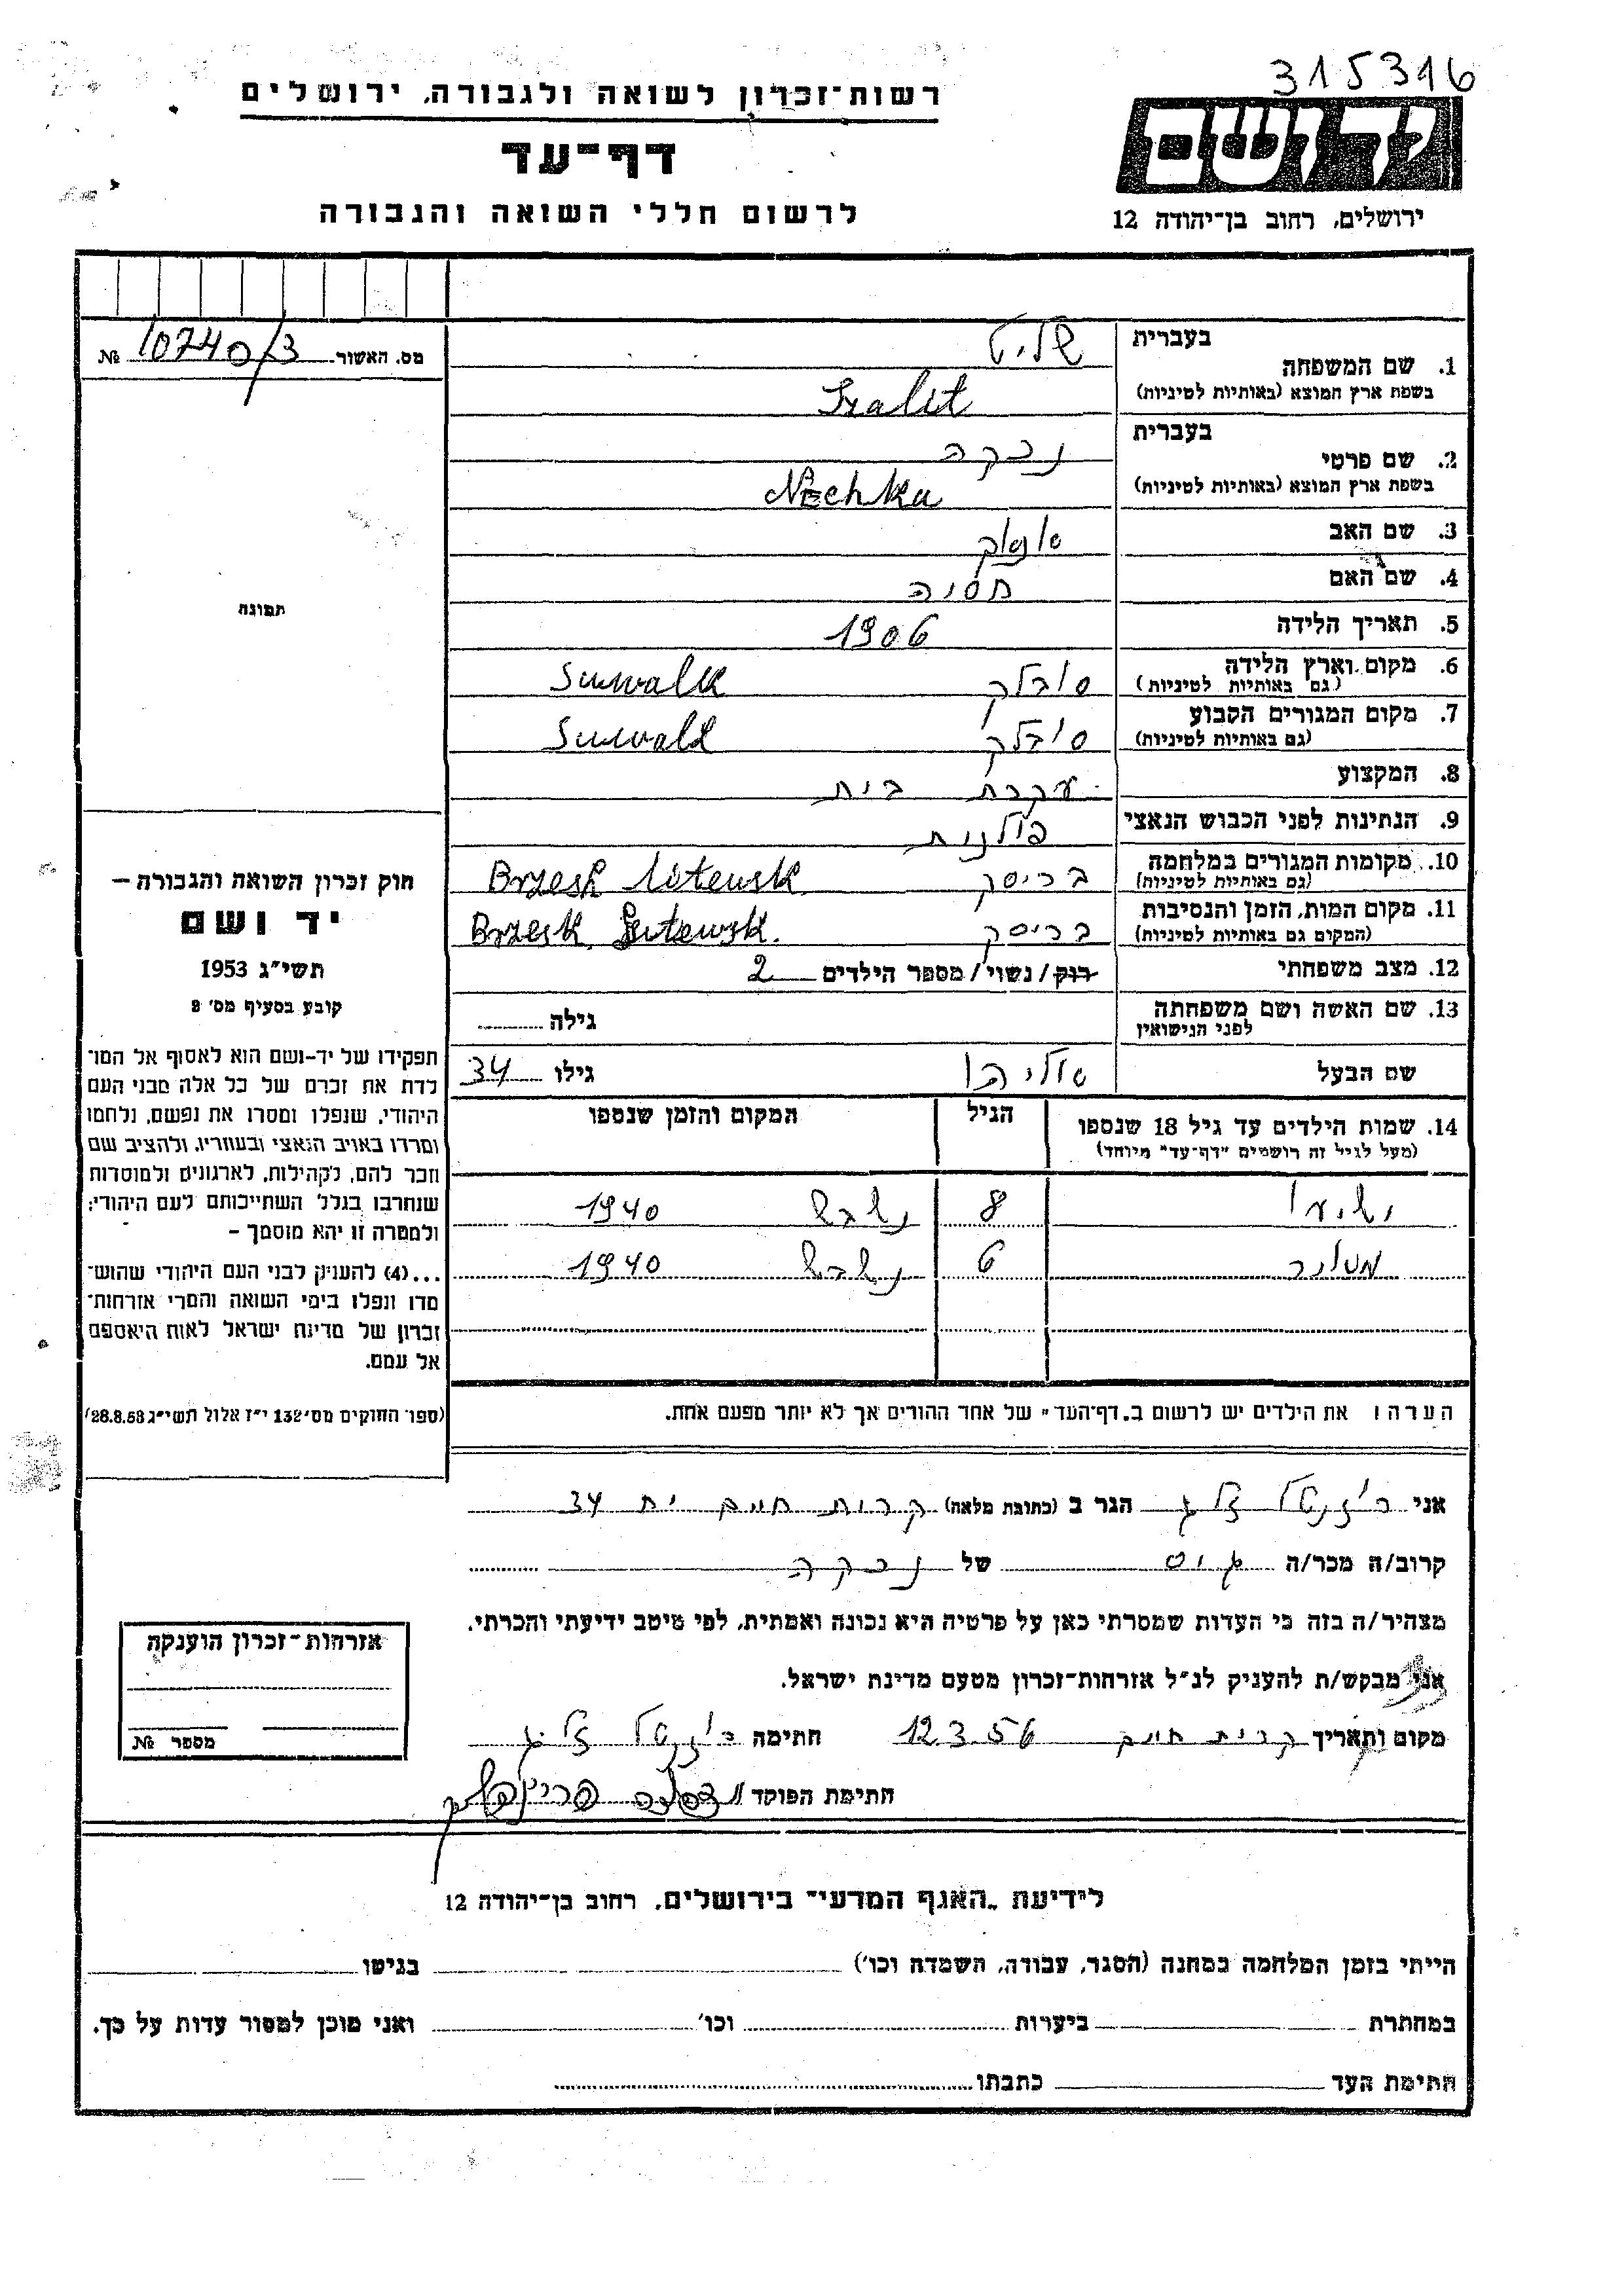 315316
רשות־זכרון לשואה ולגבורה, ירושלים
דף־עד
לרשום חללי השואה והגבורה
יד ושם
ירושלים, רחוב בן־יהודה 12
מס. האשור № 10740/3
תמונה
חוק זכרון השואה והגבורה –
יד ושם
תשי״ג 1953
קובע בסעיף מס׳ 2
תפקידו של יד-ושם הוא לאסוף אל המו־
לדת את זכרם של כל אלה מבני העם
היהודי, שנפלו ומסרו את נפשם, נלחמו
ומרדו באויב הנאצי ובעוזריו, ולהציב שם
וזכר להם, לקהילות, לארגונים ולמוסדות
שנחרבו בגלל השתייכותם לעם היהודי;
ולמטרה זו יהא מוסמך –
...(4) להעניק לבני העם היהודי שהוש־
מדו ונפלו בימי השואה והמרי אזרחות־
זכרון של מדינת ישראל לאות היאספם
אל עמם.
(ספר החוקים מס׳ 132 י״ז אלול תשי״ג 28.8.53)
1. שם המשפחה בעברית שליט
בשפת ארץ המוצא (באותיות לטיניות) Szalit
2. שם פרטי בעברית נכקה
בשפת ארץ המוצא (באותיות לטיניות) Nechka
3. שם האב
4. שם האם חסיה
5. תאריך הלידה 1906
6. מקום וארץ הלידה (גם באותיות לטיניות) סובלק Suwalk
7. מקום המגורים הקבוע (גם באותיות לטיניות) סובלק Suwalk
8. המקצוע עקרת בית
9. הנתינות לפני הכבוש הנאצי פולנית
10. מקומות המגורים במלחמה (גם באותיות לטיניות) בריסק Brzesk Litewsk
11. מקום המות, הזמן והנסיבות (המקום גם באותיות לטיניות) בריסק Brzesk Litewsk.
12. מצב משפחתי רוק/ נשוי/ מספר הילדים 2
13. שם האשה ושם משפחתה לפני הנישואין גילה
שם הבעל גילו 34
14. שמות הילדים עד גיל 18 שנספו הגיל המקום והזמן שנספו
(מעל לגיל זה רושמים "דף־עד" מיוחד)
8 1940
6 1940
הערה: את הילדים יש לרשום ב„דף־העד" של אחד ההורים אך לא יותר מפעם אחת.
אני רוזנטל זליג הגר ב (כתובת מלאה) קרית חיים ית 34
קרוב/ה מכר/ה גיס של נכקה
מצהיר/ה בזה כי העדות שמסרתי כאן על פרטיה היא נכונה ואמתית, לפי מיטב ידיעתי והכרתי.
אני מבקש/ת להעניק לנ״ל אזרחות־זכרון מטעם מדינת ישראל.
מקום ותאריך קרית חיים 12 3 56 חתימה רוזנטל זליג
חתימת הפוקד
אזרחות־זכרון הוענקה
מספר №
לידיעת „האגף המדעי" בירושלים, רחוב בן־יהודה 12
הייתי בזמן המלחמה במחנה (הסגר, עבודה, השמדה וכו׳) בגיטו
במחתרת ביערות וכו׳ ואני מוכן למסור עדות על כך.
חתימת העד כתבתו